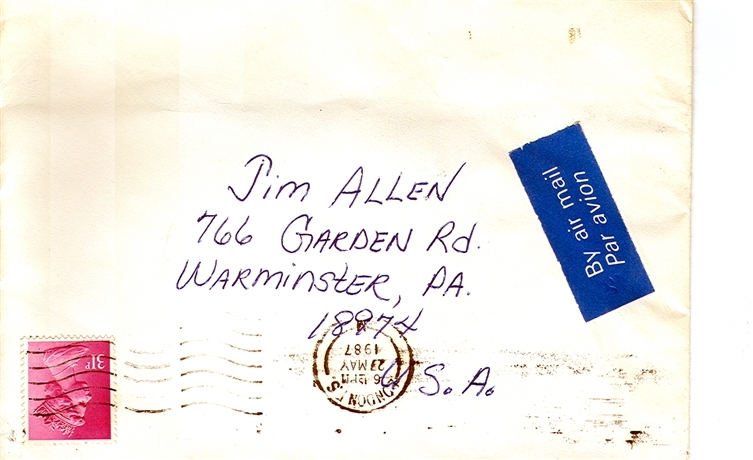 Jim ALLEN
766 GARDEN Rd.
WARMINSTER, PA.
18974
U.S.A.
By air mail
Par avion
31P
LONDON
MAY
1987